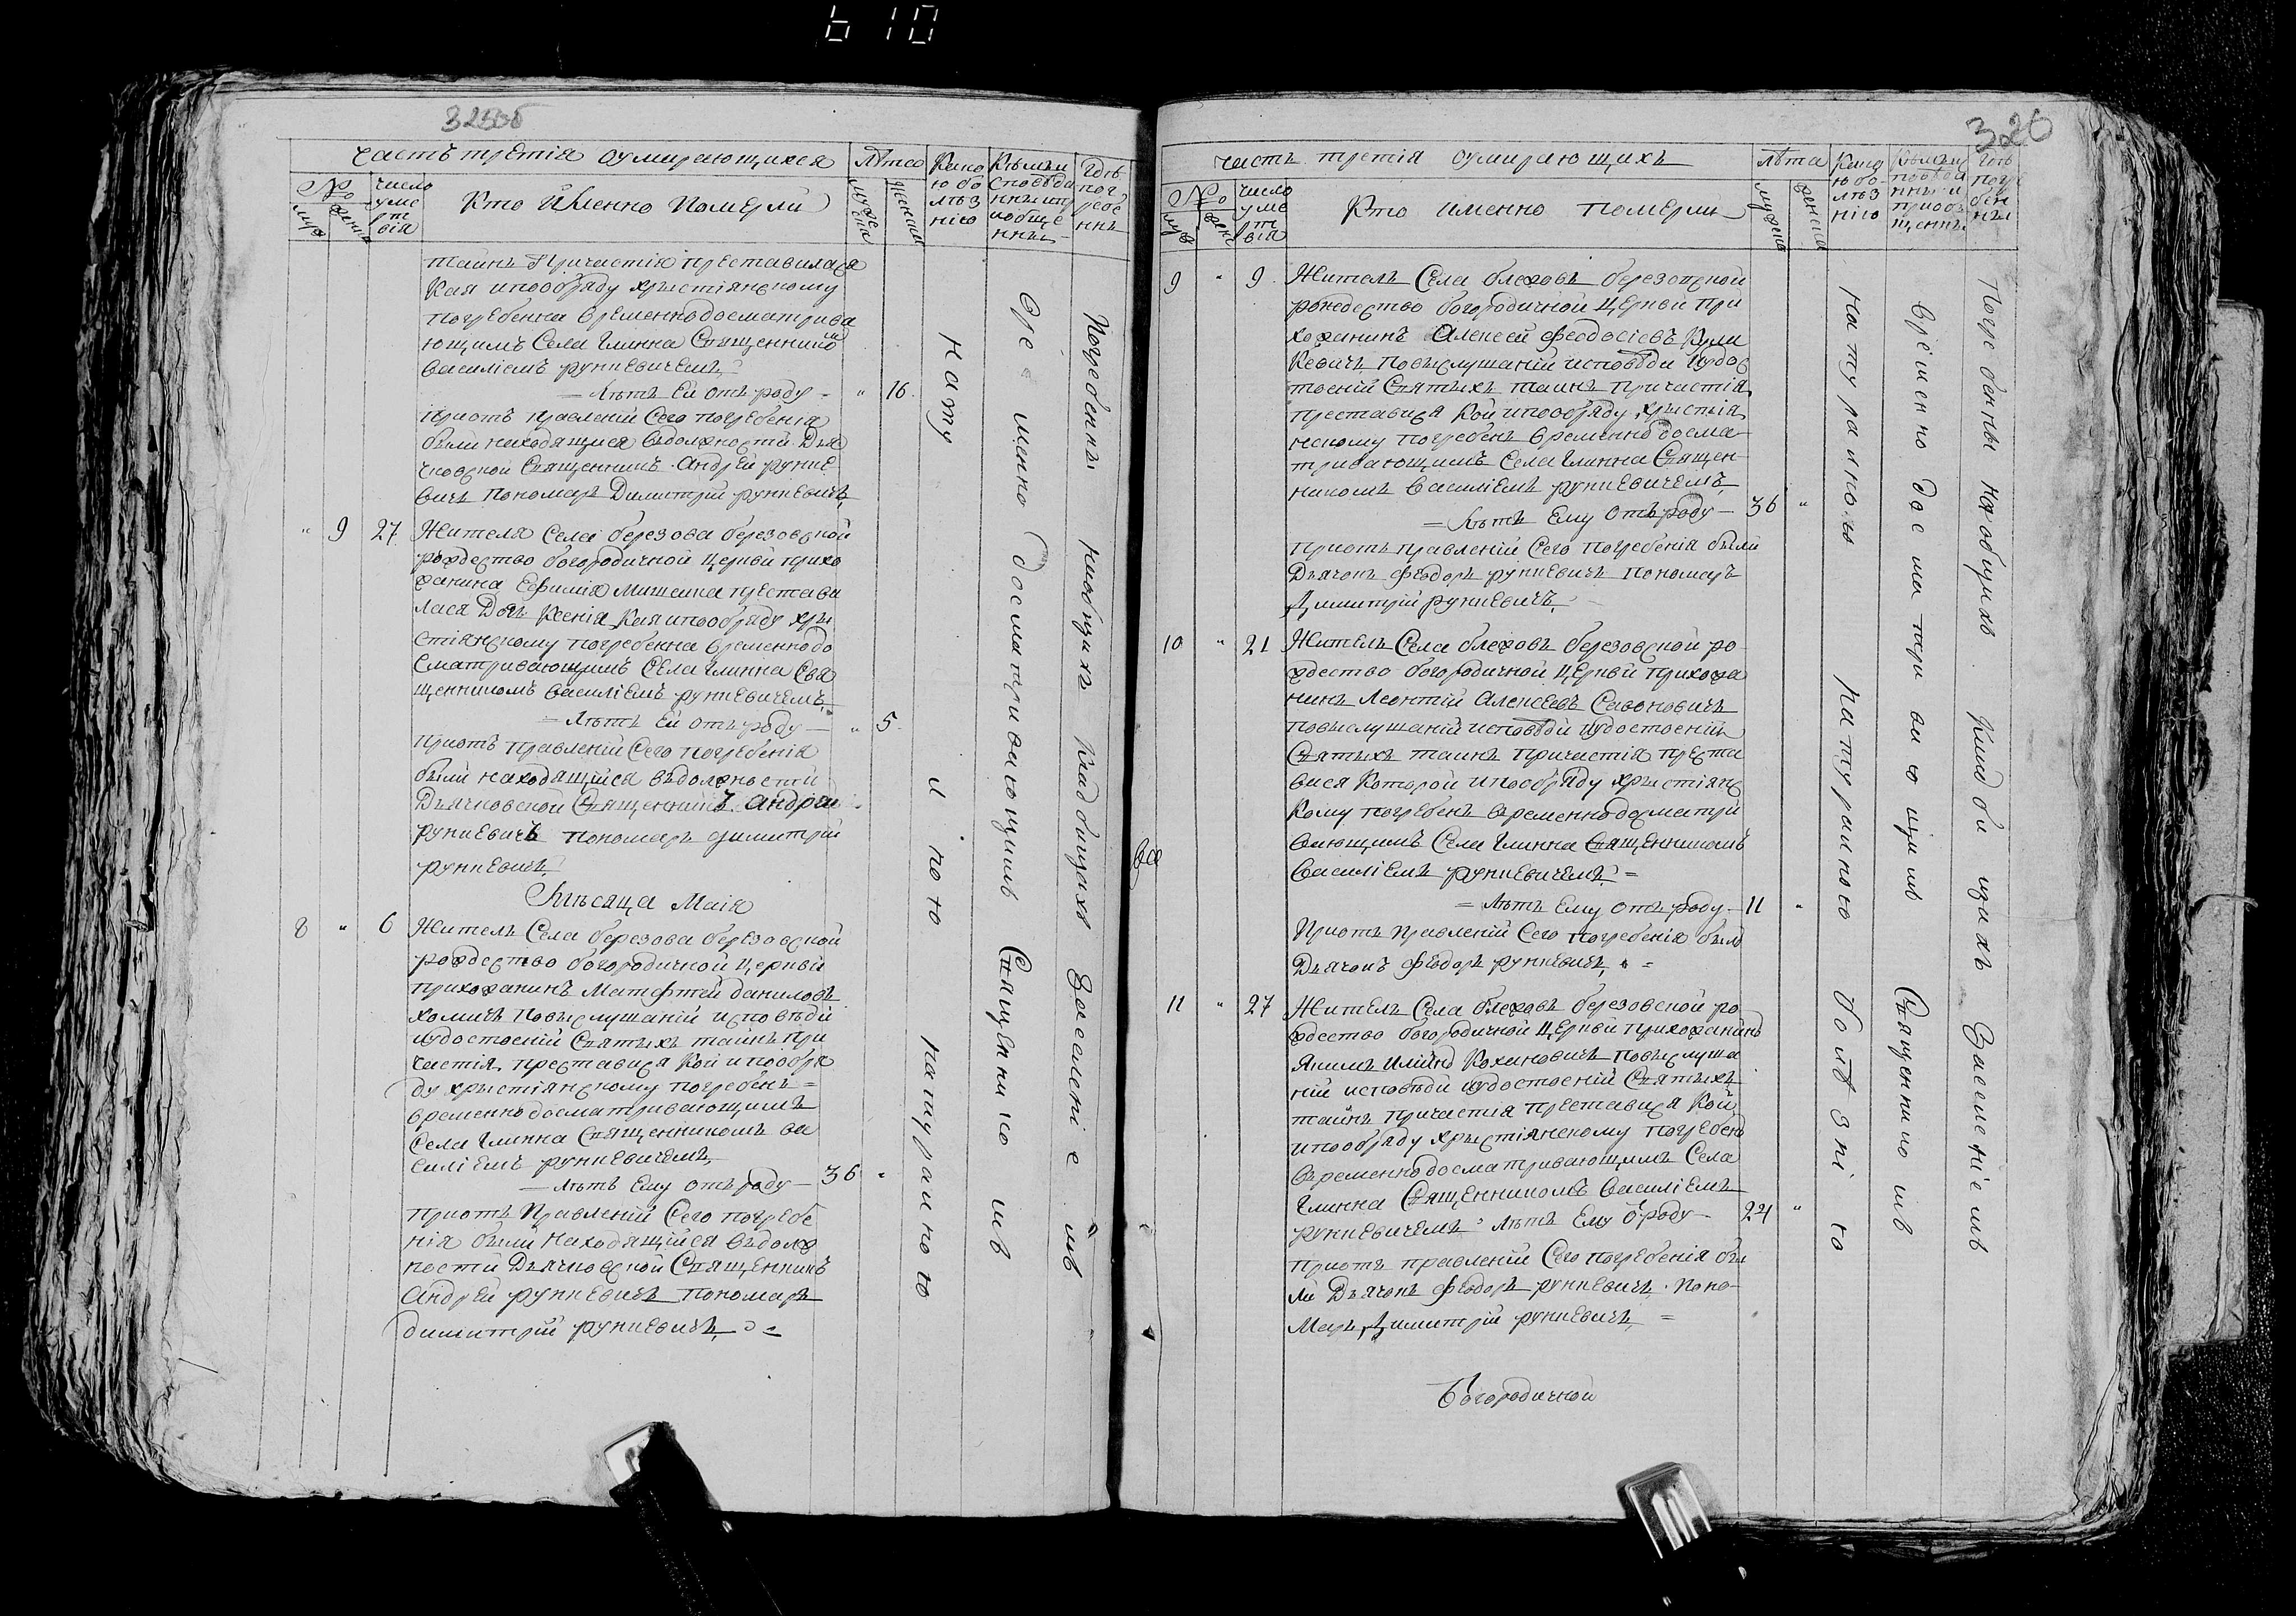 610
325об
часть третія оумирающихся
лѣта
Какою болѣзнію
Кѣмъ исповѣданны и приобщенны
Гдѣ погребенны
№
число умертвія
Кто Именно Померли
муж
женска
мужеска
женска
таинъ Причастія преставилася
Кая ипообряду христіянскому
погребенна временнодосматрива
ющимъ Села Глинна Священникомъ
Василіемъ рункевичемъ
— Лѣтъ Ей отъ роду — " 16
Приотъ правленіи Сего погребенія
были находящиися вдолжности Дья
чковской Священникъ Андрей рунке
вичъ Пономаръ Димитрій рункевичъ
" 9 27 Жителя Села березова березовской
рождество богородичной Церкви прихо
жанина Ефимія престави
лася Дочь Ксенія Кая ипообряду хри
стіянскому погребенна временнодо
сматривающимъ Села Глинна Свя
щенникомъ Василіемъ рункевичемъ
— Лѣтъ Ей отъ роду — " 5
Приотъ правленіи Сего погребенія
были находящійся вдолжностй
Дьячковской Священникъ Андрей
рункевичъ пономаръ димитрій
рункевичъ
Мѣсяца Маія
8 " 6 Житель Села березова березовской
рождество богородичной Церкви
прихожанинъ Матфтей даниловъ
хомичъ повыслушаній исповѣди
иудостоеній Святыхъ таинъ при
частія, преставися Кой ипообря
ду христіянскому погребенъ =
временнодосматривающимъ
Села Глинна Священникомъ ва
силіемъ рункевичемъ
— Лѣтъ Ему отъ роду — 36 "
Приотъ Правленій Сего погребе
нія были Находящійся вдолж
ности Дьячковской Священникъ
Андрей рункевичъ пономаръ
димитрій рункевичъ
Натуралною
Натуралною
Временно досматривающимъ Священникомъ
Погребенны наобщихъ кладбищахъ Заселеніемъ
326
часть третія оумирающихъ
лѣта
Какою болѣзнію
Гдѣ погребенны
№
число умертвія
Кто именно померли
муж
женс
мужеска
женска
9 " 9 Житель Села блежовъ березовской
рождество богородичной Церкви при
хожанинъ Алексей феодосіевъ Кули
Кевичъ повыслушаній исповѣди иудос
тоеній Святыхъ таинъ причастія
преставися Кой ипообряду христія
нскому погребенъ временнодосма
тривающимъ Села Глинна Священ
никомъ Василіемъ рункевичемъ
— Лѣтъ Ему отъ роду — 36 "
приотъ правленій Сего погребенія были
Дьячокъ феодоръ рункевичъ пономаръ
Димитрій рункевичъ
10 " 21 Житель Села блежовъ березовской ро
ждество богородичной Церкви прихожа
нинъ Леонтій Алексеевъ
повыслушаній исповѣдй иудостоеній
Святыхъ таинъ причастія преста
вися Которой ипообряду христіянс
кому погребенъ временнодосматри
вающимъ Села Глинна Священникомъ
Василіемъ рункевичемъ =
= Лѣтъ Ему отъ роду — 11 "
Приотъ правленій Сего погребенія былъ
Дьячокъ феодоръ рункевичъ =
11 " 27 Житель Села блежовъ березовской ро
ждество богородичной Церкви прихожанинъ
Якимъ повыслуша
ній исповѣди иудостоеній Святыхъ
таинъ причастія преставися Кой
ипообряду христіянскому погребенъ
временнодосматривающимъ Села
Глинна Священникомъ Василіемъ
рункевичемъ Лѣтъ Ему отроду — 24 "
Приотъ правленій Сего погребенія бы
ли Дьячокъ феодоръ рункевичъ Поно
Маръ Димитрій рункевичъ =
Натуралною Натуралною болѣзнію
временно досматривающимъ Священникомъ
Погребенны наобщихъ Кладбищахъ Заселеніемъ
Богородичной